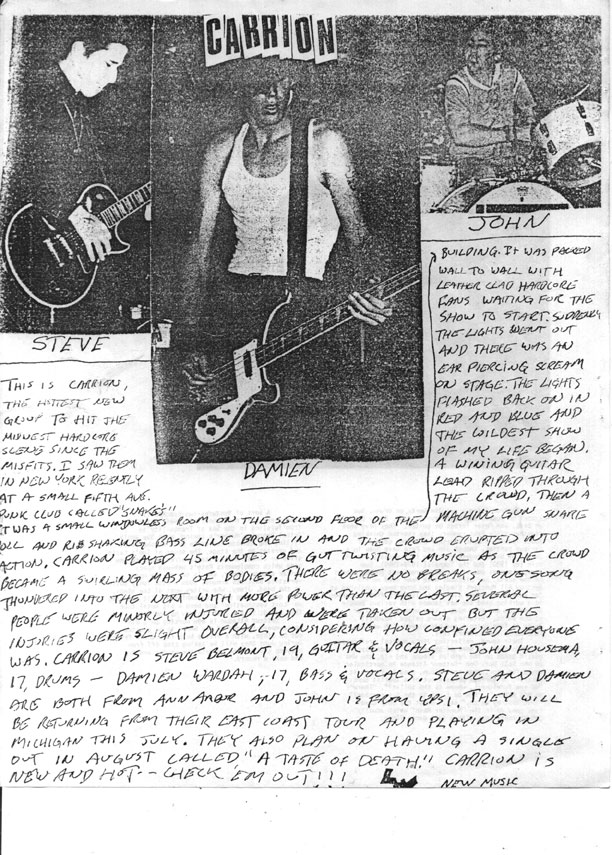 CARRION
STEVE
DAMIEN
JOHN
THIS IS CARRION,
THE HOTTEST NEW
GROUP TO HIT THE
MIDWEST HARDCORE
SCENE SINCE THE
MISFITS. I SAW THEM
IN NEW YORK RESENTLY
AT A SMALL FIFTH AVE.
PUNK CLUB CALLED "SNAKES"
IT WAS A SMALL WINDOWLESS ROOM ON THE SECOND FLOOR OF THE
BUILDING. IT WAS PACKED
WALL TO WALL WITH
LEATHER CLAD HARDCORE
FANS WAITING FOR THE
SHOW TO START. SUDDENLY
THE LIGHTS WENT OUT
AND THERE WAS AN
EAR PIERCING SCREAM
ON STAGE. THE LIGHTS
FLASHED BACK ON IN
RED AND BLUE AND
THE WILDEST SHOW
OF MY LIFE BEGAN.
A WINING GUITAR
LEAD RIPPED THROUGH
THE CROWD, THEN A
MACHINE GUN SNARE
OLL AND RIB SHAKING BASS LINE BROKE IN AND THE CROWD ERUPTED INTO
ACTION. CARRION PLAYED 45 MINUTES OF GUT TWISTING MUSIC AS THE CROWD
BECAME A SWIRLING MASS OF BODIES. THERE WERE NO BREAKS, ONE SONG
THUNDERED INTO THE NEXT WITH MORE POWER THAN THE LAST. SEVERAL
PEOPLE WERE MINORLY INJURED AND WERE TAKEN OUT BUT THE
INJURIES WERE SLIGHT OVERALL, CONSIDERING HOW CONFINED EVERYONE
WAS. CARRION IS STEVE BELMONT, 19, GUITAR & VOCALS — JOHN HOUSEMA,
17, DRUMS — DAMIEN WARDAH, 17, BASS & VOCALS. STEVE AND DAMIEN
ARE BOTH FROM ANN ARBOR AND JOHN IS FROM YPSI. THEY WILL
BE RETURNING FROM THEIR EAST COAST TOUR AND PLAYING IN
MICHIGAN THIS JULY. THEY ALSO PLAN ON HAVING A SINGLE
OUT IN AUGUST CALLED "A TASTE OF DEATH." CARRION IS
NEW AND HOT -- CHECK 'EM OUT!!!
NEW MUSIC